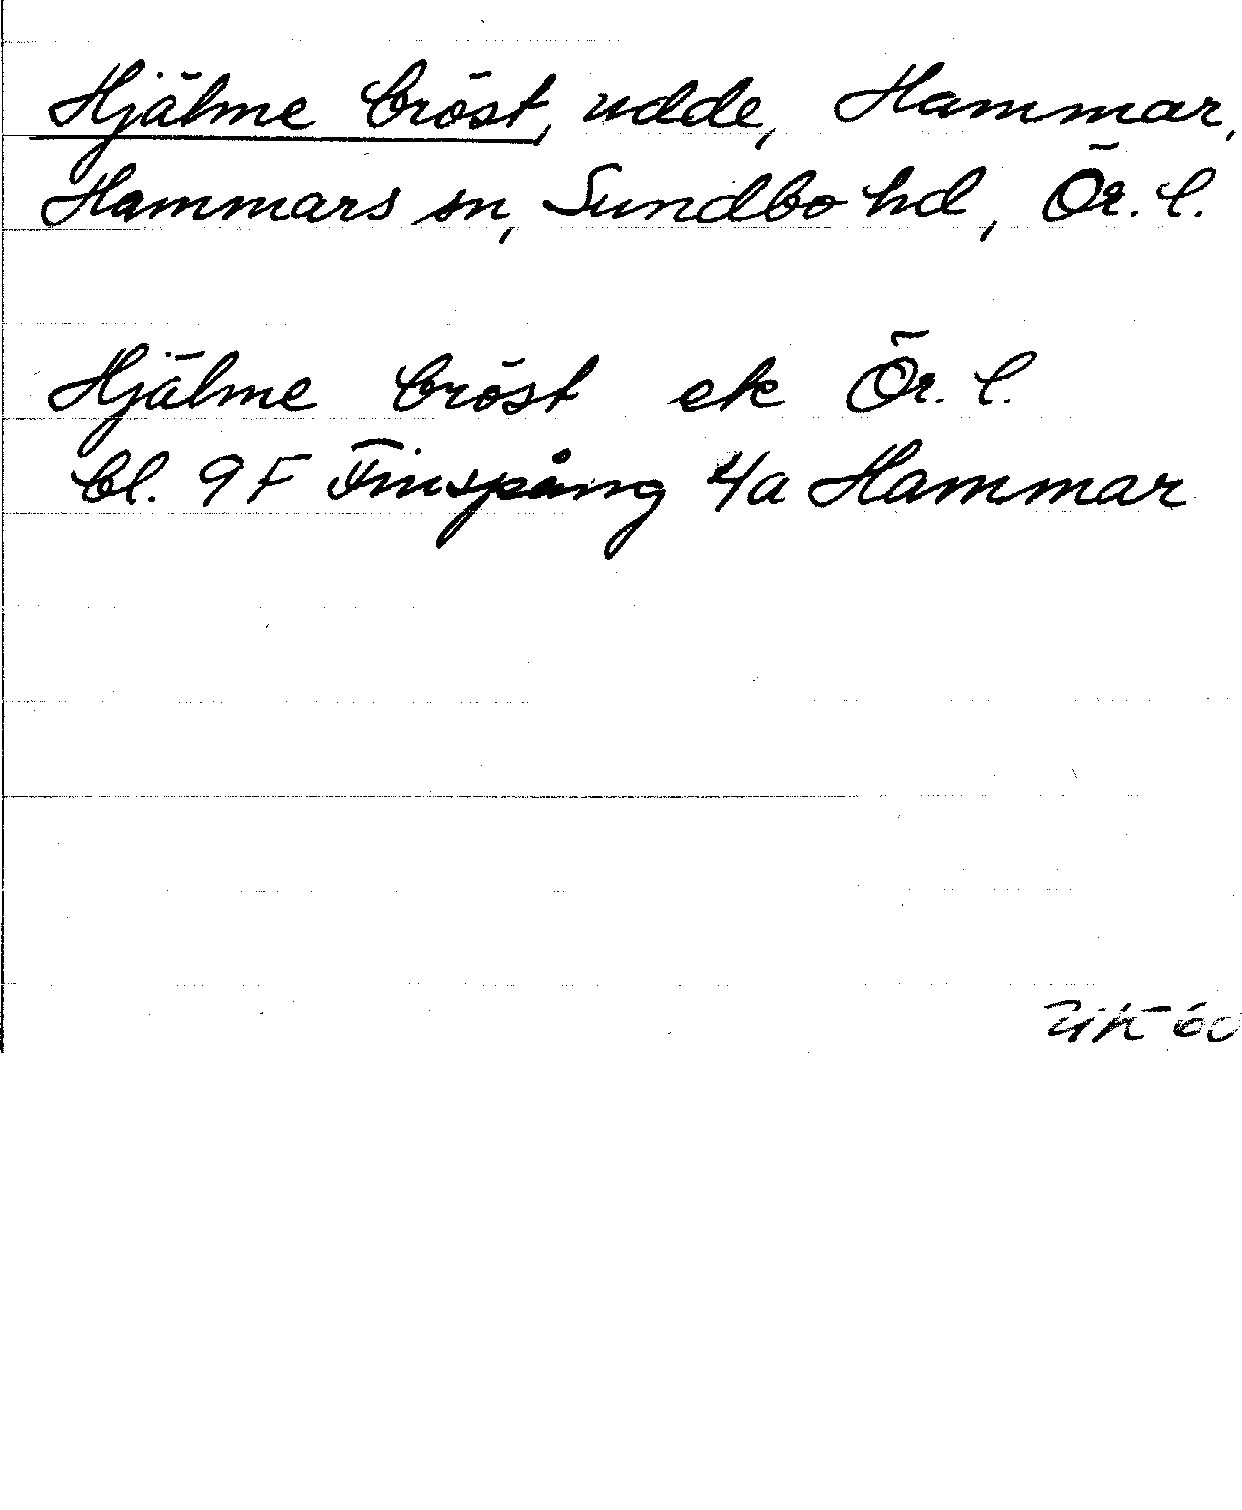 Hjälme bröst, udde, Hammar,
Hammars sn, Sundbo hd, Ör. l.
Hjälme bröst ek Ör. l.
bl. 9F Finspång 4a Hammar
60